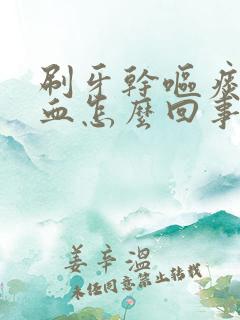 刷牙幹嘔痰
血怎麼回事
姜辛溫
未经同意禁止转载